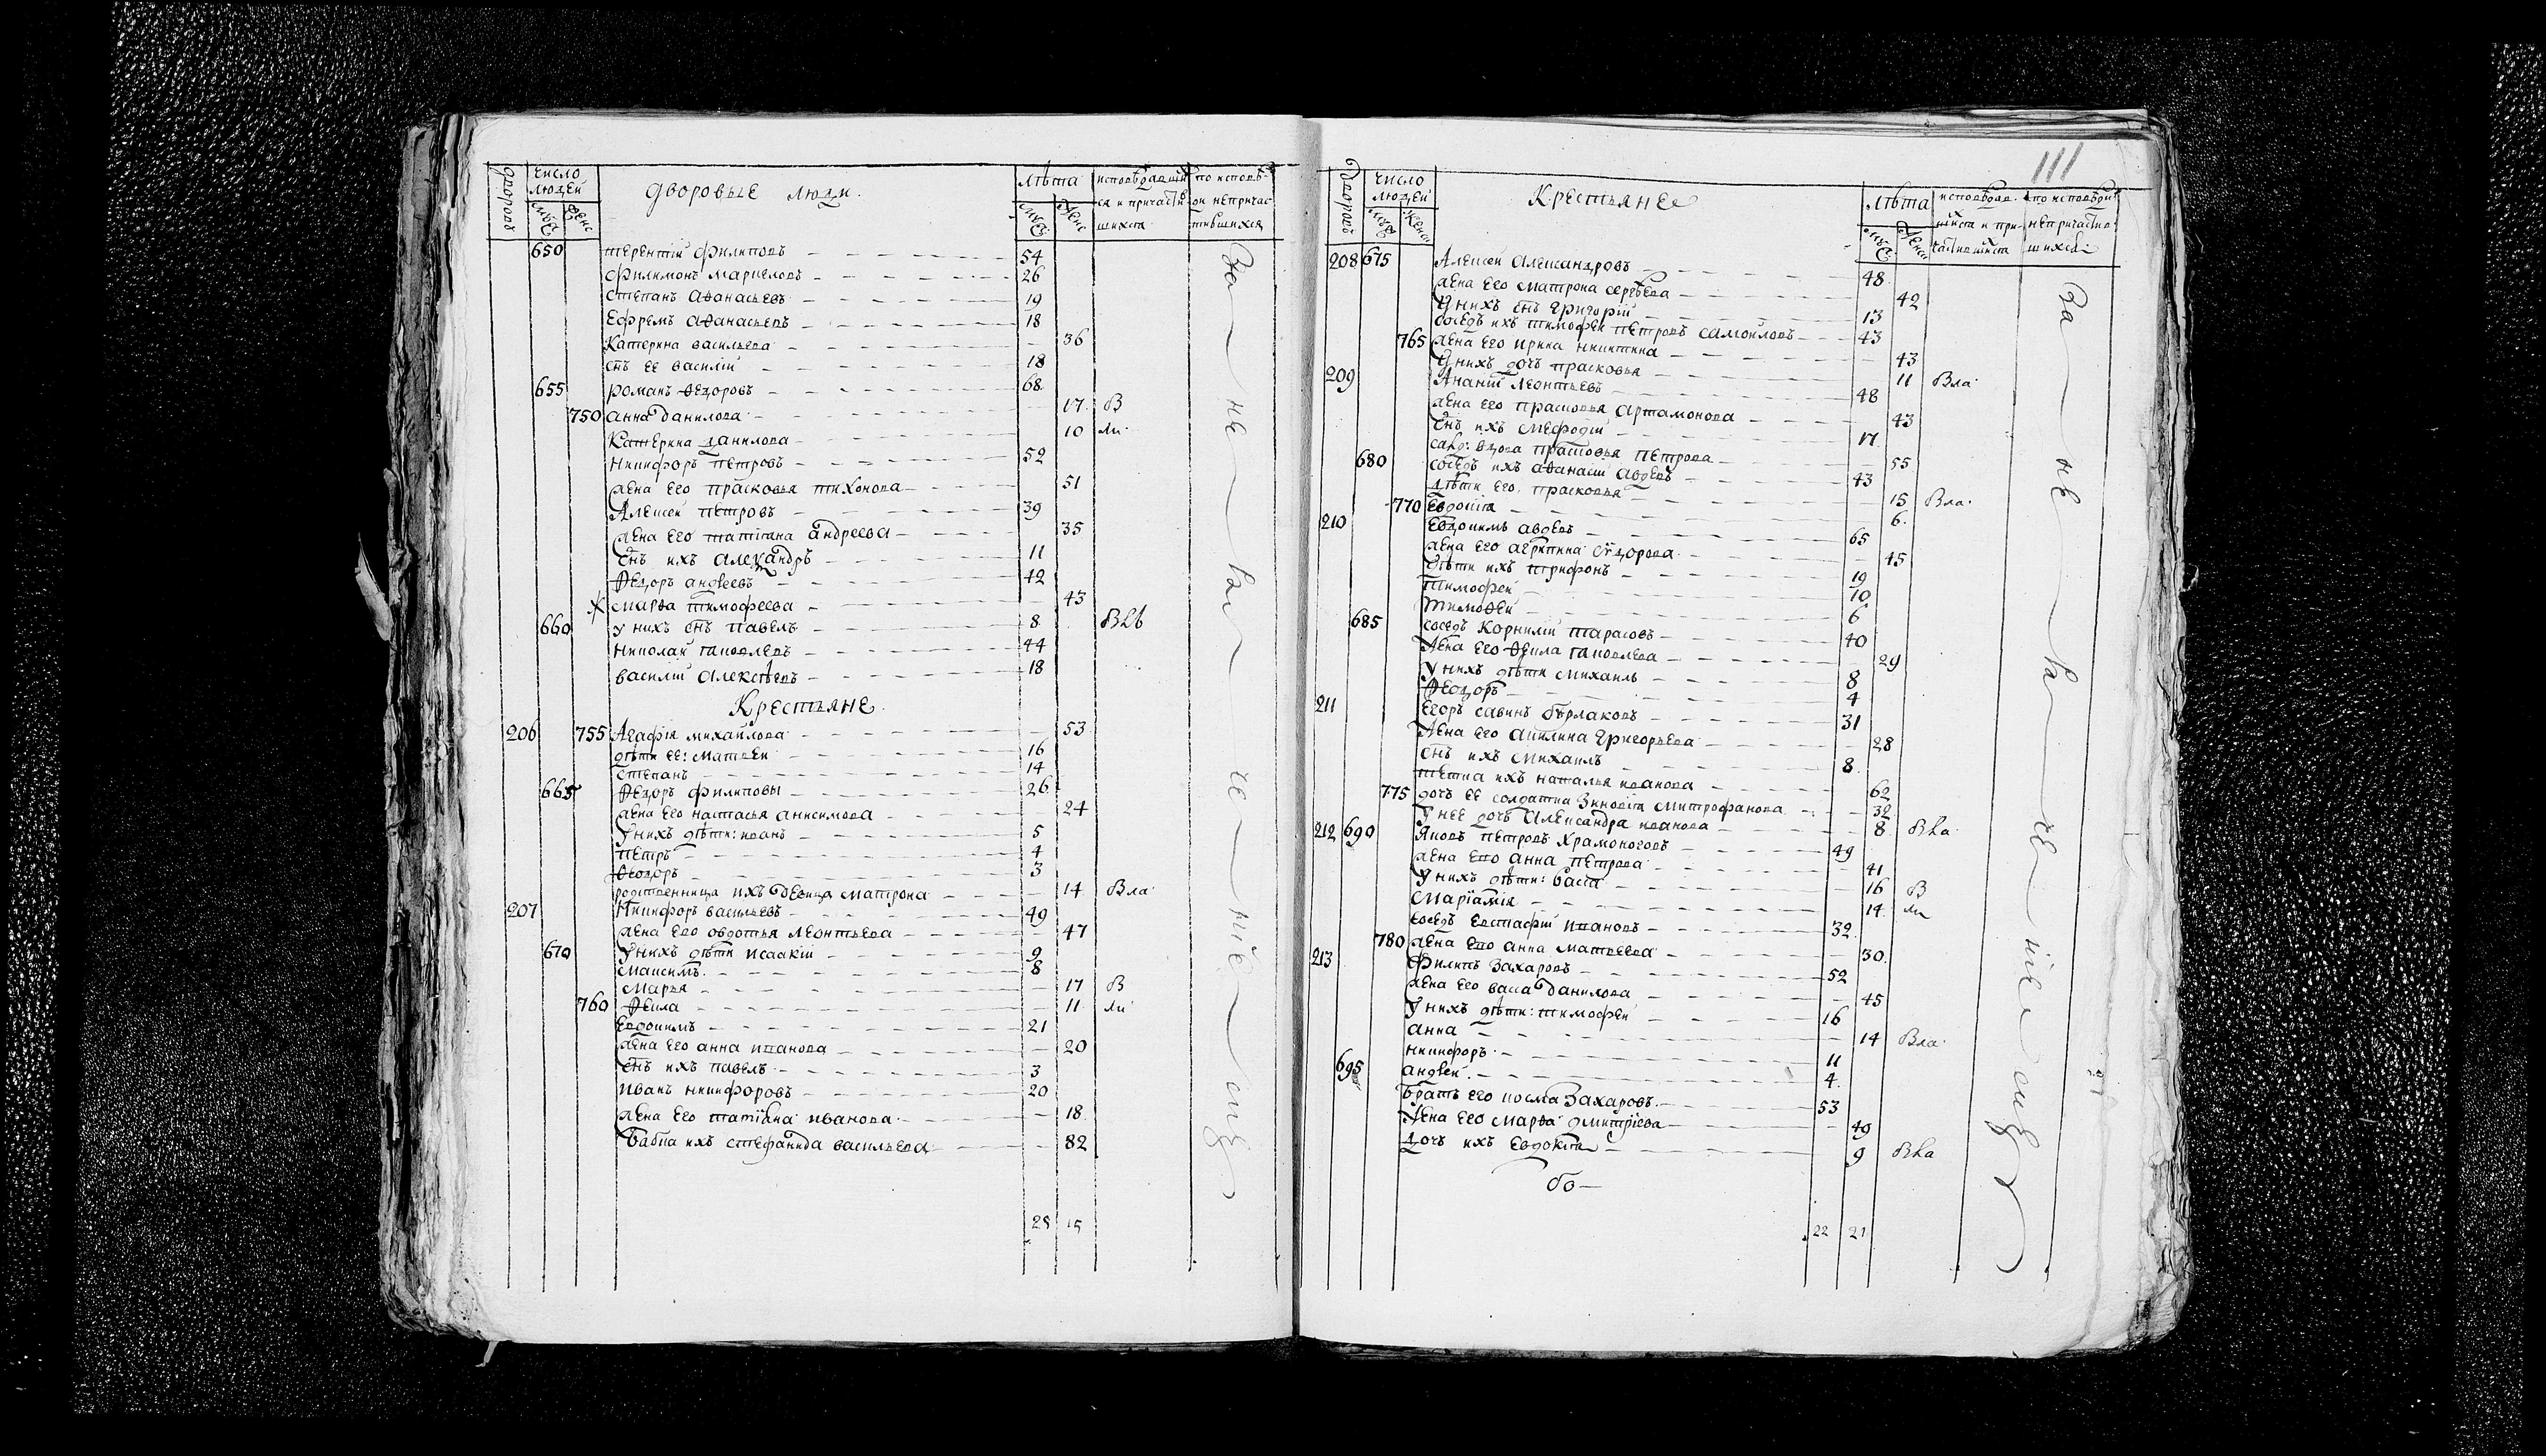 дворовъ
число людей
мужс
женс
дворовые люди.
лѣта
мужс
женс
650 терентiй филиповъ 54
филимонъ маркеловъ 26
степанъ аѳанасьевъ 19
Ефремъ аѳанасьевъ 18
Катерина васильева 36
сн҃ъ ее василiй 18
655 романъ ѳедоровъ 68
750 анна данилова 17 В
Катерина данилова 10 ли
никифоръ петровъ 52
жена его прасковья тихонова 51
Алексей петровъ 39
жена его татiяна андреева 35
сн҃ъ ихъ александръ 11
Ѳедоръ андреевъ 42
марѳа тимофеева 43
660 у нихъ сн҃ъ павелъ 8
николай яковлевъ 44
василiй алексѣевъ 18
Крестьяне
206 755 Агафiя михайлова 53
дѣти ее: матвей 16
степанъ 14
665 Ѳедоръ филиповы 26
жена его настасья анисимова 24
у нихъ дѣти: иванъ 5
петръ 4
ѳеодоръ 3
родственница ихъ девица матрона 14 Вла
207 Никифоръ васильевъ 49
жена его овдотья леонтьева 47
670 у нихъ дѣти исаакiй 9
максимъ 8
марья 17 В
760 Ѳекла 11 ли
Евдокимъ 21
жена его анна иванова 20
сн҃ъ ихъ павелъ 3
иванъ никифоровъ 20
жена его татiяна иванова 18
бабка ихъ стефанида васильева 82
15
111
дворовъ
число людей
мужс
женс
Крестьяне
лѣта
208 675 Алексей александровъ 48
жена его матрона сергѣева 42
У нихъ сн҃ъ григорiй 13
соседъ ихъ тимофей петровъ самойловъ 43
765 жена его ирина никитина 43
У нихъ дочь прасковья 11 Вла
209 Ананiй леонтьевъ 48
жена его прасковья артамонова 43
сн҃ъ ихъ мефодiй 17
вдова прасковья петрова 55
680 соседъ ихъ аѳанасiй авдевъ 43
дѣти его прасковья 15 Вла
770 Евдокiя 6
210 Евдокимъ авдевъ 65
жена его агрипина сидорова 45
дѣти ихъ трифонъ 19
тимофей 10
тимоѳей 6
685 соседъ корнилiй тарасовъ 40
жена его ѳекла яковлева 29
у нихъ дѣти михаилъ 8
Ѳеодоръ 4
211 Егоръ савинъ бурлаковъ 31
жена его акилина григорьева 28
сн҃ъ ихъ михаилъ 8
тетка ихъ наталья иванова 62
775 дочь ее солдатка Зиновiя митрофанова 32
У нее дочь александра иванова 8
212 690 Яковъ петровъ храмоноговъ 49
жена его анна петрова 41
у нихъ дѣти: васса 16 В
марiамiя 14 ли
соседъ евстафiй ивановъ 32
780 жена его анна матвеева 30
213 филипъ Захаровъ 52
жена его васса данилова 45
у нихъ дѣти: тимофей 16
анна 14 Вла
никифоръ 11
695 андрей 4
братъ его косма Захаровъ 53
жена его марѳа дмитрiева 49
дочь ихъ евдокiя 9
22 21